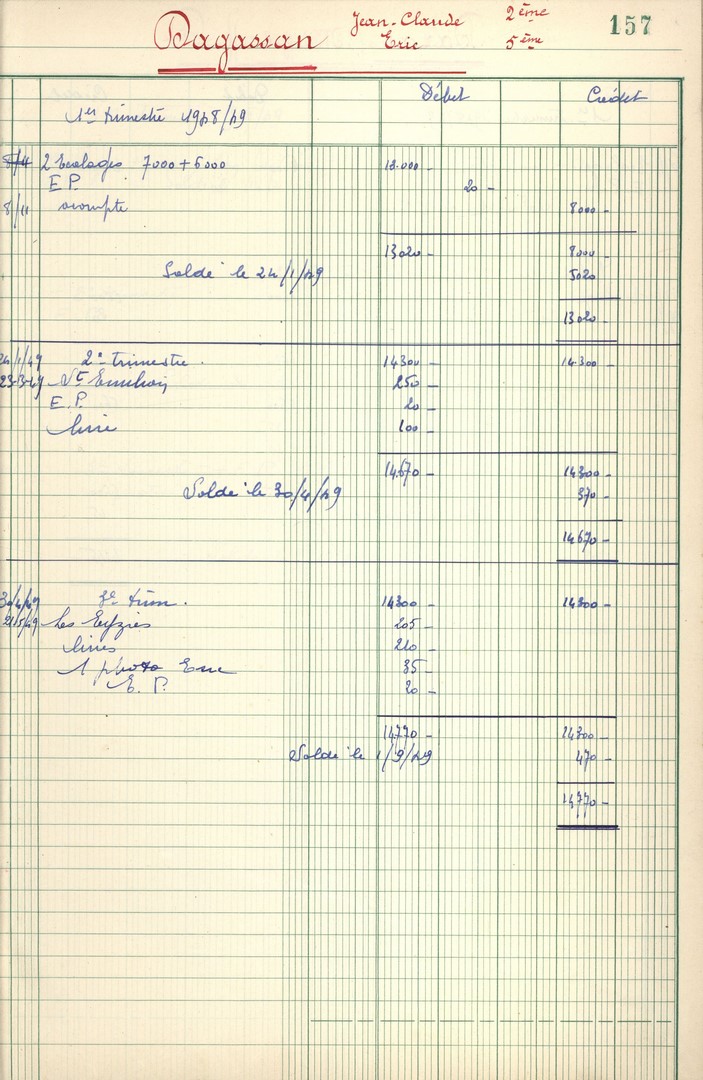 Dagassan Jean-Claude 2ème 157
Eric 5ème
Débit Crédit
1er trimestre 1948/49
8/11 2 Ecolages 7000 + 6000 13.000 -
E P. 20 -
8/11 acompte 8000 -
13020 - 8000 -
Solde le 24/1/49 5020
13020 -
24/1/49 2e trimestre. 14300 - 14300 -
23-3-49 St Emilion 250 -
E. P. 20 -
livre 100 -
14670 - 14300 -
Solde le 30/4/49 370 -
14670 -
30/4/49 3e trim. 14300 - 14300 -
21/5/49 Les Eyzies 205 -
livres 210 -
1 photo Eric 35 -
E. P. 20 -
14770 - 14300 -
Solde le 1/9/49 470 -
14770 -